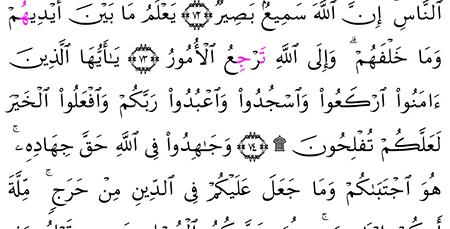 ٱلنَّاسِ إِنَّ ٱللَّهَ سَمِيعٌۢ بَصِيرٌ ۝٧٢ يَعْلَمُ مَا بَيْنَ أَيْدِيهِمْ
وَمَا خَلْفَهُمْ ۗ وَإِلَى ٱللَّهِ تَرْجِعُ ٱلْأُمُورُ ۝٧٣ يَٰٓأَيُّهَا ٱلَّذِينَ
ءَامَنُواْ ٱرْكَعُواْ وَٱسْجُدُواْ وَٱعْبُدُواْ رَبَّكُمْ وَٱفْعَلُواْ ٱلْخَيْرَ
لَعَلَّكُمْ تُفْلِحُونَ ۩ ۝٧٤ وَجَٰهِدُواْ فِى ٱللَّهِ حَقَّ جِهَادِهِۦ ۚ
هُوَ ٱجْتَبَىٰكُمْ وَمَا جَعَلَ عَلَيْكُمْ فِى ٱلدِّينِ مِنْ حَرَجٍ ۚ مِّلَّةَ